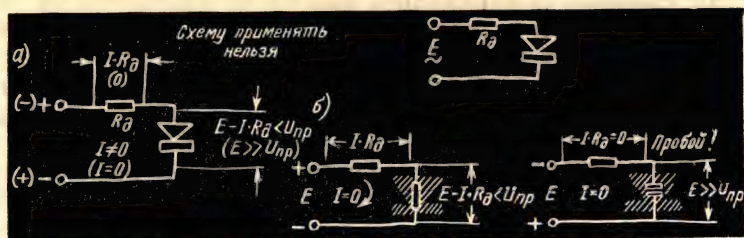 Схему применять
нельзя
a)
I·R∂
(0)
(-)+
R∂
I≠0
(I=0)
(+)-
E-I·R∂<Uпр
(E>>Uпр)
E
~
R∂
б)
I·R∂
+
E I=0
-
E-I·R∂<Uпр
I·R∂=0
Пробой!
-
E I=0
+
E>>Uпр